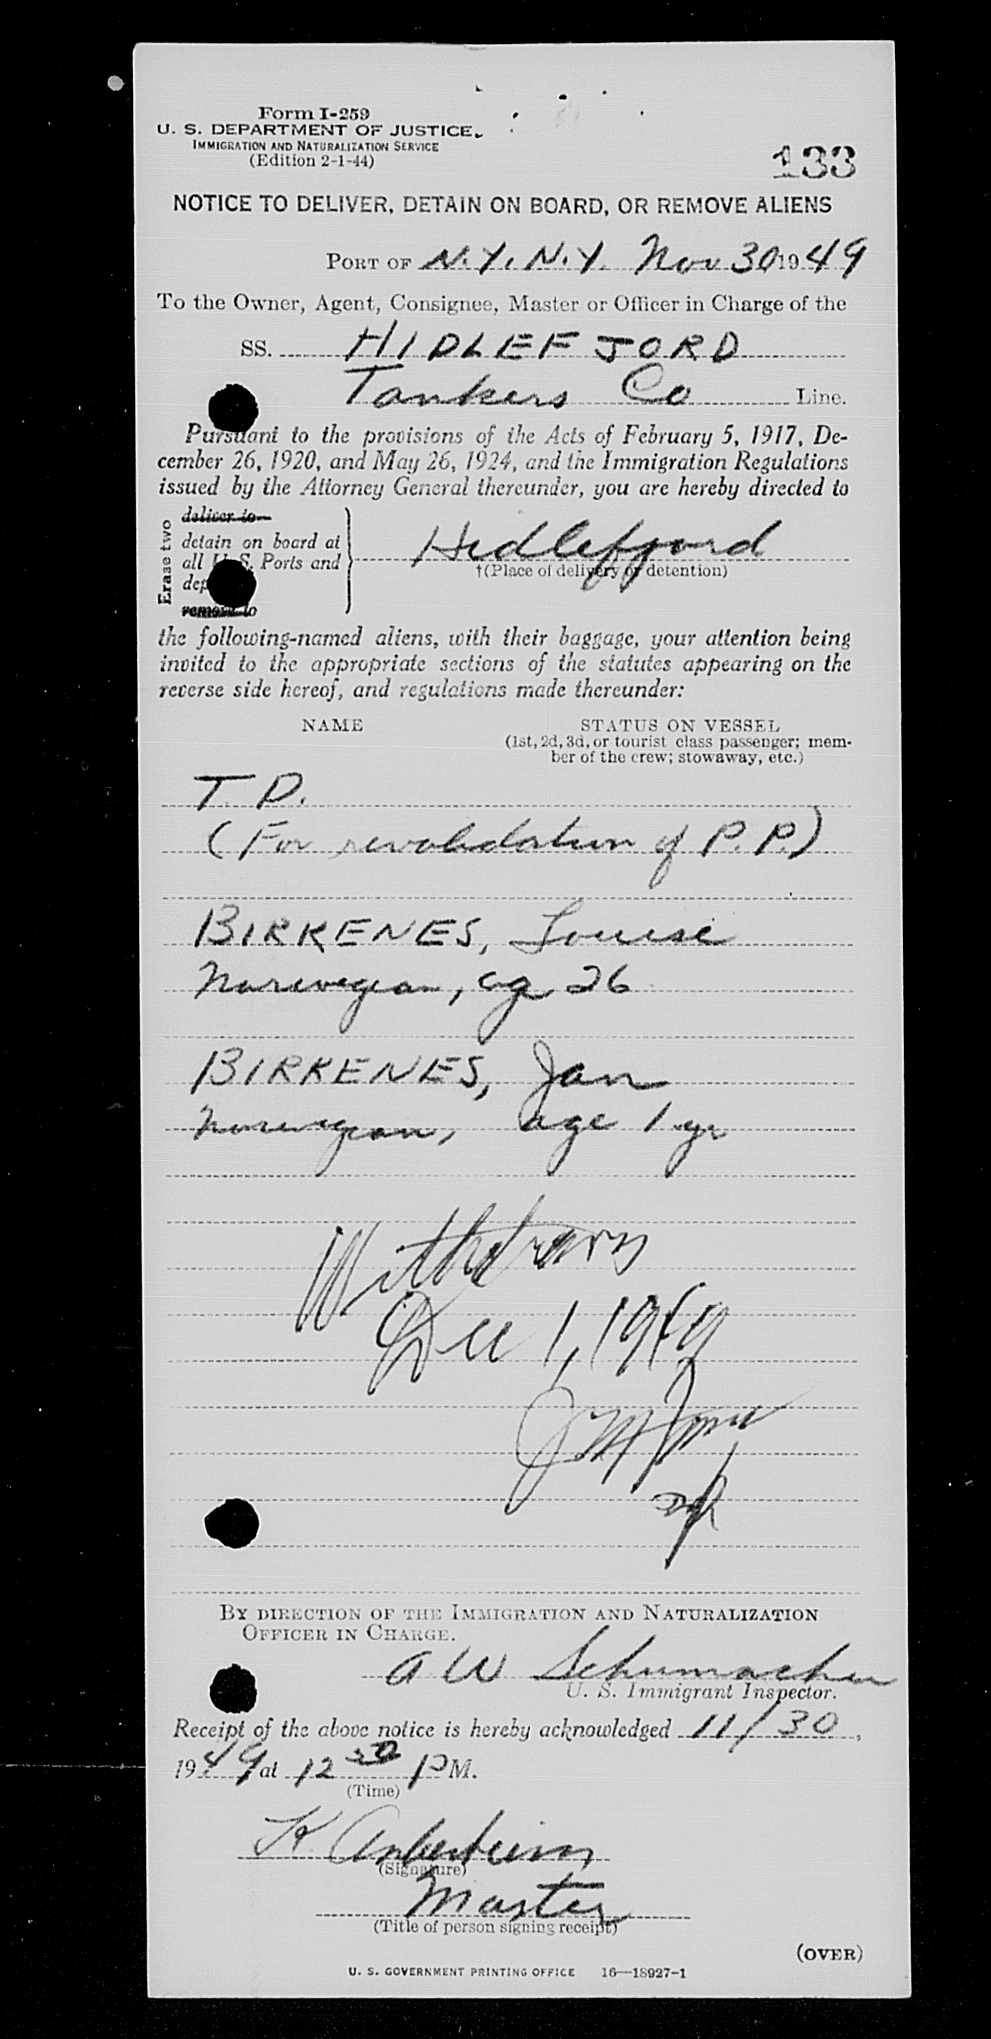 Form I-259
U. S. DEPARTMENT OF JUSTICE
IMMIGRATION AND NATURALIZATION SERVICE
(Edition 2-1-44)
133
NOTICE TO DELIVER, DETAIN ON BOARD, OR REMOVE ALIENS
PORT OF N.Y. N.Y. Nov 30 1949
To the Owner, Agent, Consignee, Master or Officer in Charge of the
SS. HIDLEFJORD
Tankers Co Line.
Pursuant to the provisions of the Acts of February 5, 1917, De-
cember 26, 1920, and May 26, 1924, and the Immigration Regulations
issued by the Attorney General thereunder, you are hereby directed to
Erase two
deliver to
detain on board at
all U.S. Ports and
dep
remove to
Hidlefjord
†(Place of delivery or detention)
the following-named aliens, with their baggage, your attention being
invited to the appropriate sections of the statutes appearing on the
reverse side hereof, and regulations made thereunder:
NAME STATUS ON VESSEL
(1st, 2d, 3d, or tourist class passenger; mem-
ber of the crew; stowaway, etc.)
T. D.
(For revalidation of P.P.)
BIRKENES, Louise
Norwegian, ag 26
BIRKENES, Jan
Norwegian, age 1 yr
Withdrawn
Dec 1, 1949
BY DIRECTION OF THE IMMIGRATION AND NATURALIZATION
OFFICER IN CHARGE.
A W Schumacher
U. S. Immigrant Inspector.
Receipt of the above notice is hereby acknowledged 11/30,
1949 at 12 PM.
(Time)
K.
(Signature)
Master
(Title of person signing receipt)
(OVER)
U. S. GOVERNMENT PRINTING OFFICE 16—18927-1